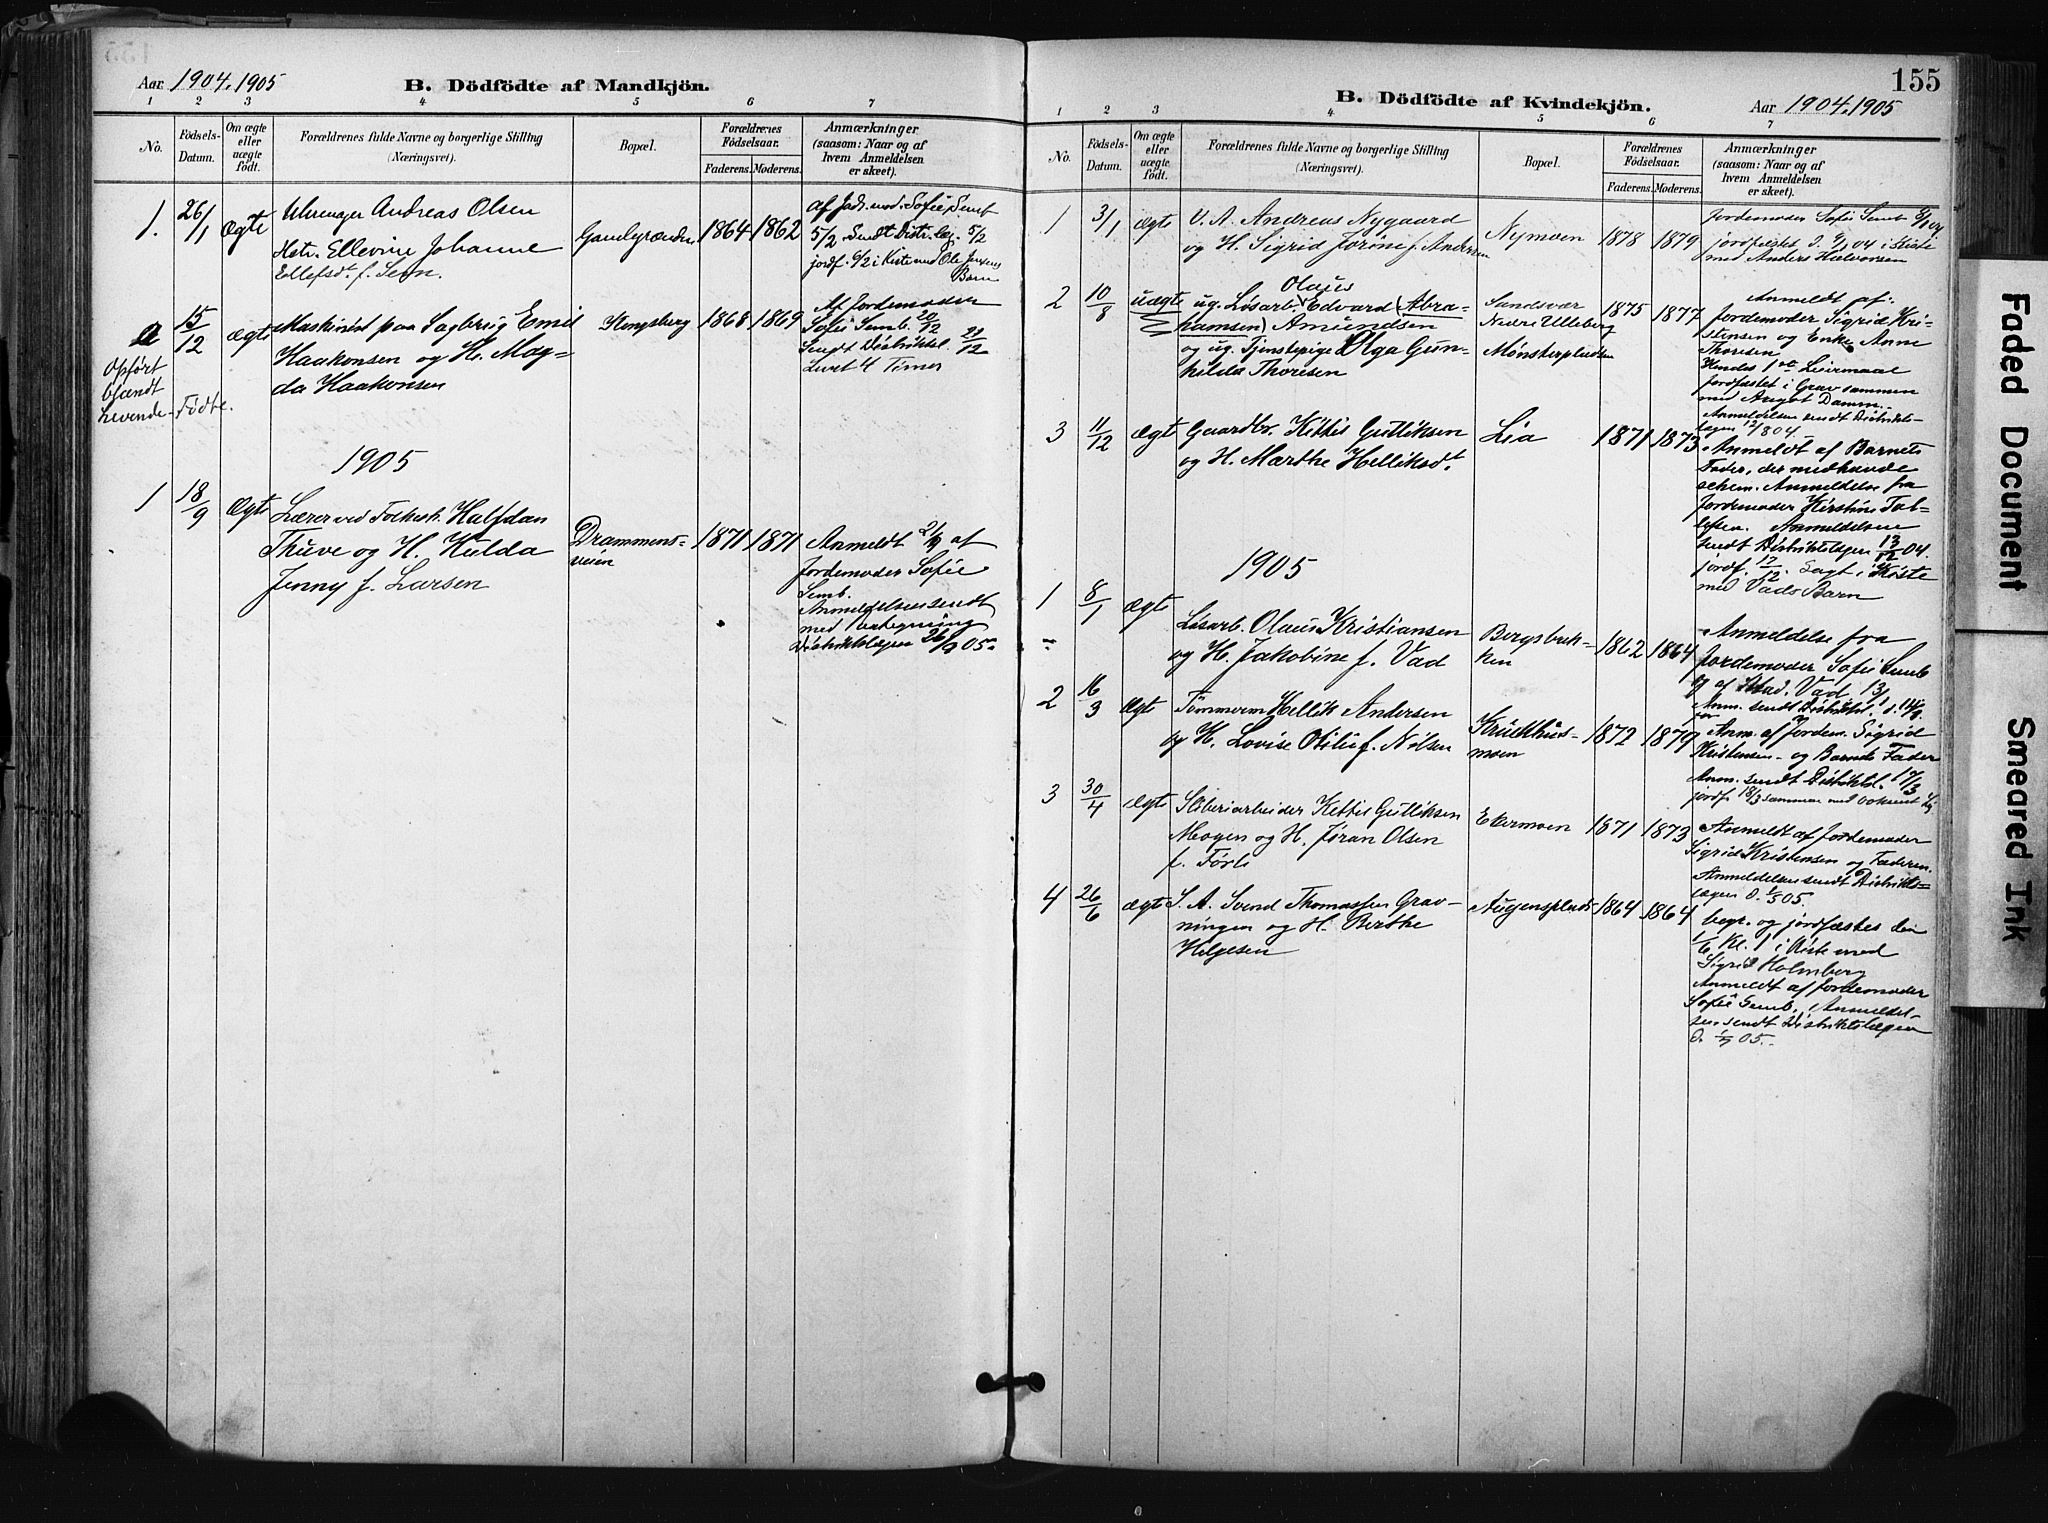 Aar 1904, 1905
B. Dödfödte af Mandkjön.
1 2 3 4 5 6 7
No.
Födsels-Datum.
Om ægte eller uægte födt.
Forældrenes fulde Navne og borgerlige Stilling (Næringsvei).
Bopæl.
Forældrenes Födselsaar.
Faderens. Moderens.
Anmærkninger (saasom: Naar og af hvem Anmeldelsen er skeet).
1. 26/1 Ægte
Uhrmager Andreas Olsen
Hstr. Ellevine Johanne
Ellefsdt. f. Sem.
1864 1862
af Jord.mod. Sofie Semb
5/2 Sendt Distr.læg. 5/2
jordf. 6/2 i Kiste med Ole Jensens
Barn
a 15/12 ægte
Opført
blandt
Levende-Födte.
Maskinist paa Sagbrug Emil
Haakonsen og H. Mag-
da Haakonsen
Kongsberg
1868 1869
Af Jordemoder
Sofie Semb. 20/12
Sendt Distriktsl. 22/12
Levet 4 Timer
1905
1 18/9 Ægte
Lærer ved Folkesk. Halfdan
Thuve og H. Hulda
Jenny f. Larsen
Drammens-
veien
1871 1871
Anmeldt 21/9 af
Jordemoder Sofie
Semb.
Anmeldelsen sendt
med paategning
Distriktslægen 26/9 05.
155
B. Dödfödte af Kvindekjön.
Aar 1904, 1905
1 2 3 4 5 6 7
No.
Födsels-Datum.
Om ægte eller uægte födt.
Forældrenes fulde Navne og borgerlige Stilling (Næringsvei).
Bopæl.
Forældrenes Födselsaar.
Faderens. Moderens.
Anmærkninger (saasom: Naar og af hvem Anmeldelsen er skeet).
1 3/1 ægte
V. A. Andreas Nygaard
og H. Sigrid Jorine f. Andersen
Nymoen
1878 1879
Jordemoder Sofie Semb 9/1 04
jordfæstet d. 9/1 04 i Kiste
med Anders Halvorsen
2 10/8 uægte
Olaus
ug. Løsarb. Edvard (Abra-
hamsen) Amundsen
og ug. Tjenstepige Olga Gun-
hilda Thoresen
Sandsvær
Nedre Ulleberg
Mønsterpladsen
1875 1877
Anmeldt af:
Jordemoder Sigrid Kri-
stensen og Enke Anne
Thoresen
Hendes 1ste Leiermaal
Jordfæstet i Grav sammen
med August Damm.
Anmeldelsen sendt Distrikts-
lægen 12/8 04.
3 11/12 Ægte
Gaardbr. Kittil Gulliksen
og H. Marthe Helliksdt.
Lia
1871 1873
Anmeldt af Barnets
Fader, der medhavde
schem. Anmeldelse fra
Jordemoder Kirstine Tol-
lefsen. Anmeldelsen
sendt Distriktslægen 13/12 04.
jordf. 17/12. Lagt i Kiste
med Vads Barn
1905
1 8/1 ægte
Løsarb. Olaus Kristiansen
og H. Jakobine f. Vad
Bergsbak-
ken
1862 1864
Anmeldelse fra
Jordemoder Sofie Semb
og af Vad 13/1
Anm. sendt Distriktsl. 14/1.
2 16/3 Ægte
Tømmerm Hellik Andersen
og H. Lovise Otilie f. Nilsen
Krudthus-
moen
1872 1879
Anm. af Jordem. Sigrid
Kristensen og Barnets Fader
Anm. sendt Distriktsl. 17/3
jordf. 18/3 sammen med voksent Lig
3 30/4 Ægte
Sliberiarbeider Kittil Gulliksen
Mogen og H. Jøran Olsen
f. Førli
Ekermoen
1871 1873
Anmeldt af Jordemoder
Sigrid Kristensen og Faderen
Anmeldelsen sendt Distrikts-
lægen d. 1/5 05.
4 26/6 ægte
S. A. Svend Thomassen Grav-
ningen og H. Berthe
Helgesen
Augensplads
1864 1864
begr. og jordfæstes den
Kl. 1 i Kiste med
Sigrid Holmberg
Anmeldt af Jordemoder
Sofie Semb. Anmeldel-
sen sendt Distriktslægen
d. 1/7 05.
Faded Document
Smeared Ink